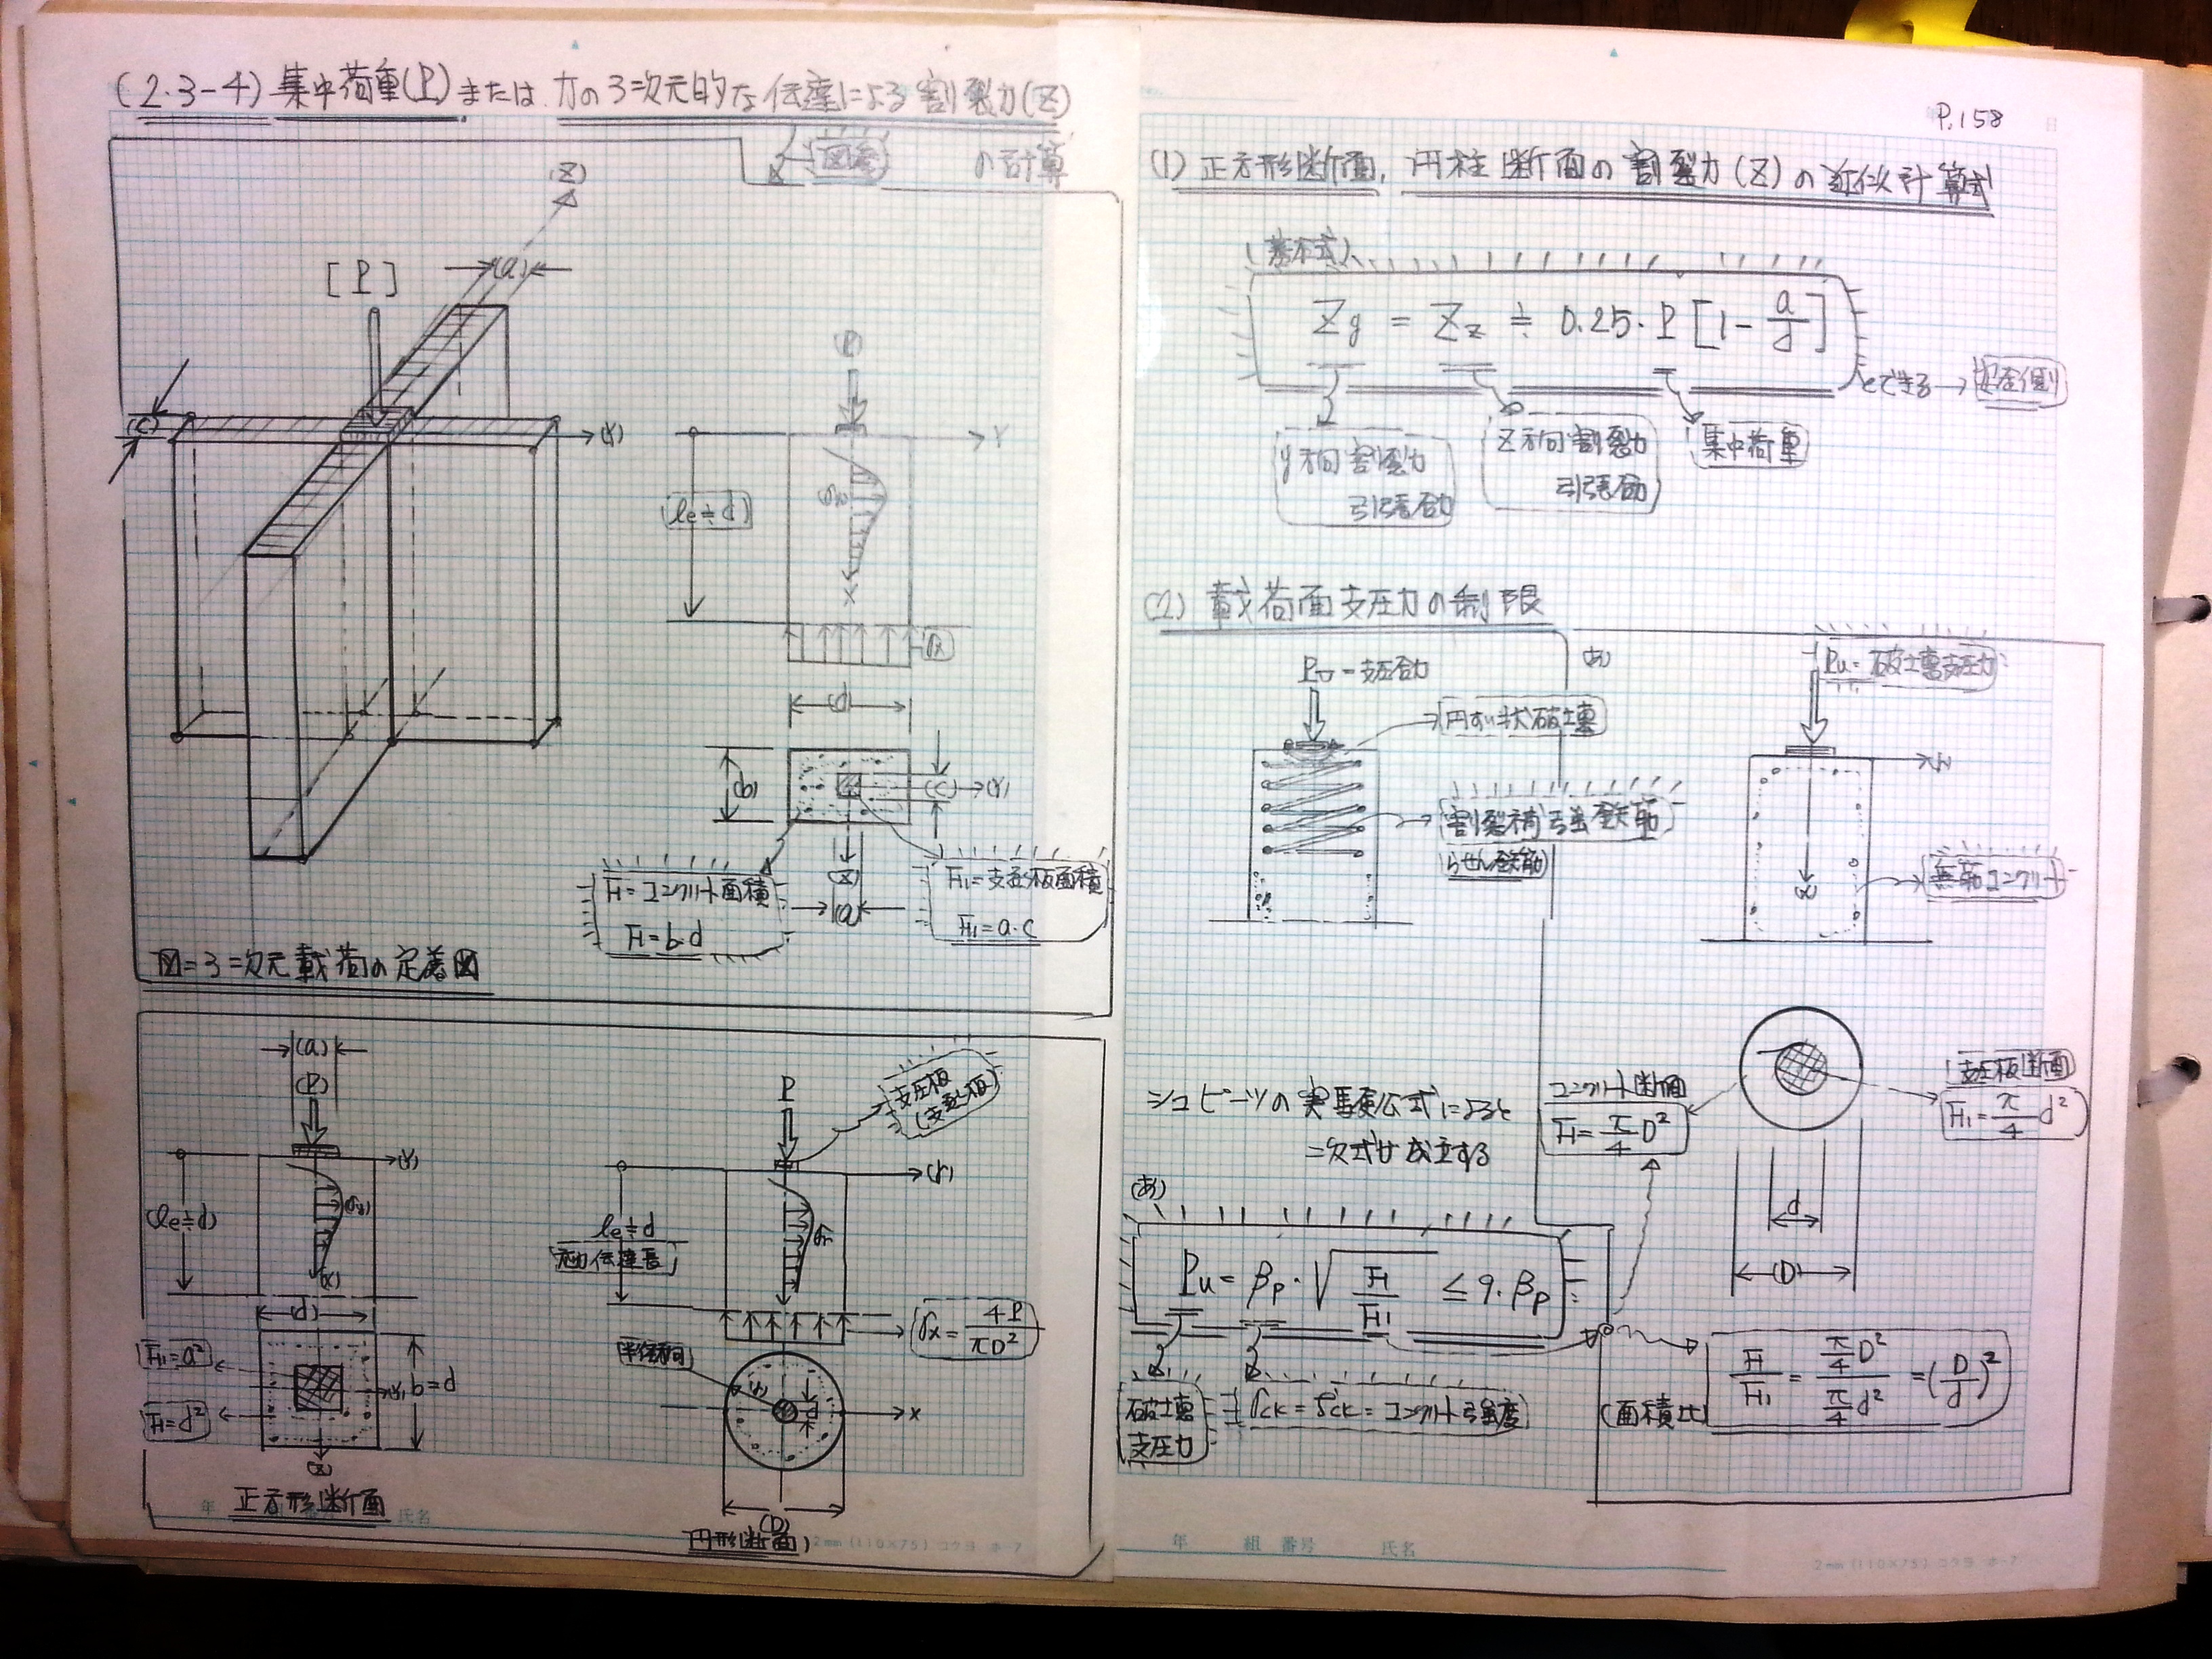 (2.3-4) 集中荷重(P)または力の3=次元的な伝達による割裂力(Z)
の計算
(Z)
[P]
(a)
(C)
(Y)
P
Y
le≒d
x
σx
(d)
(b)
(C)
(Y)
(Z)
(a)
F=コンクリート面積
F=b・d
F1=支圧板面積
F1=a・c
図=3=次元載荷の定着図
(a)
(P)
(Y)
(le≒d)
(σy)
(x)
(d)
F1=a²
F=d²
(Y)
b=d
(Z)
正方形断面
P
支圧板
(支圧板)
(r)
le≒d
応力伝達長
σr
σx=4P/πD²
半径方向
(r)
d
x
(D)
円形断面
年
氏名
2mm (110×75) コクヨ ホ-7
P.158
日
(1) 正方形断面, 円柱断面の割裂力(Z)の近似計算式
(基本式)
Zy = Zz ≒ 0.25・P[1-a/d]
とできる→安全側
y方向割裂力
引張合力
Z方向割裂力
引張合力
集中荷重
(2) 載荷面支圧力の制限
Pu=支圧合力
円すい状破壊
割裂補強鉄筋
らせん鉄筋
(あ)
Pu=破壊支圧力
無筋コンクリート
シュピーツの実験公式によると
二次式が成立する
コンクリート断面
F=π/4 D²
支圧板断面
F1=π/4 d²
d
(D)
(あ)
Pu=βp・√F/F1 ≤9・βp
破壊
支圧力
σck=δck=コンクリート強度
(面積比)
F/F1=(π/4 D²)/(π/4 d²)=(D/d)²
年 組 番号 氏名
2mm (110×75) コクヨ ホ-7